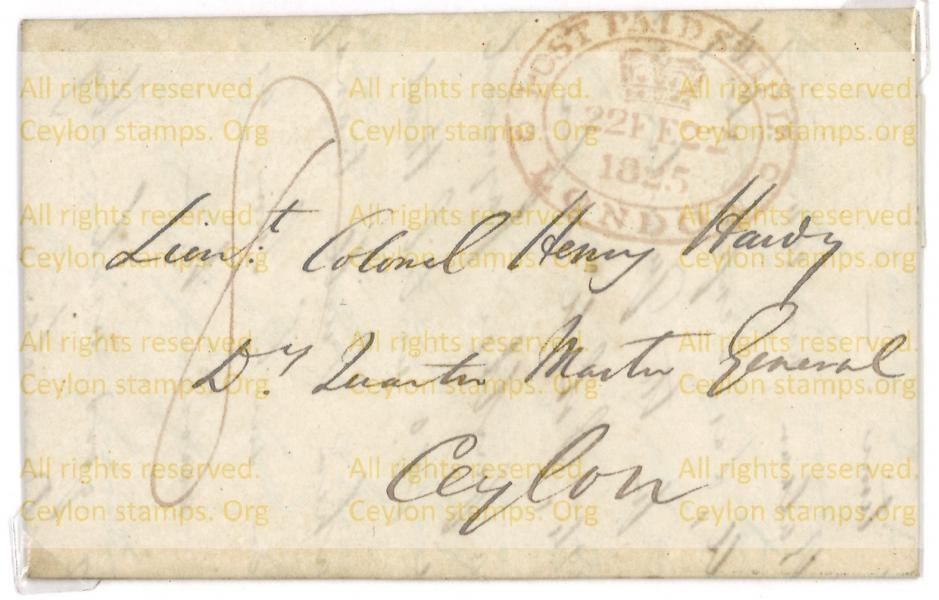 POST PAID SHIP LR
22 FE 22
1825
LONDON
Lieut. Colonel Henry Hardy
Dy. Quarter Master General
Ceylon
All rights reserved. All rights reserved. All rights reserved.
Ceylon stamps. Org Ceylon stamps. Org Ceylon stamps. Org
All rights reserved. All rights reserved. All rights reserved.
Ceylon stamps. Org Ceylon stamps. Org Ceylon stamps. Org
All rights reserved. All rights reserved. All rights reserved.
Ceylon stamps. Org Ceylon stamps. Org Ceylon stamps. Org
All rights reserved. All rights reserved. All rights reserved.
Ceylon stamps. Org Ceylon stamps. Org Ceylon stamps. Org